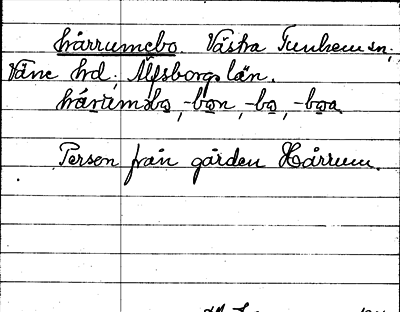 hårrumebo. Västra Tunhem sn;
Väne hd; Älfsborgs län.
hárumsbo, -bon, -bo, -boa
Person från gården Hårrum.